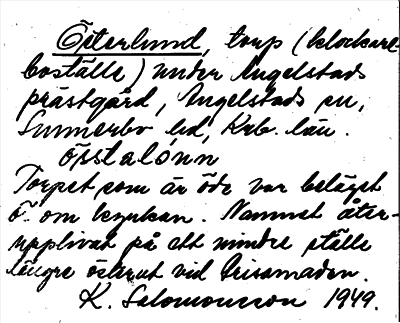 Österlund, torp (klockare-
boställe) under Angelstads
prästgård, Angelstads sn,
Sunnerbo hd, Krb. län.
östalónn
Torpet som är öde var beläget
ö. om kyrkan. Namnet åter-
upplivat på ett mindre ställe
längre österut vid Prisamaden.
K. Salomonsson 1949.